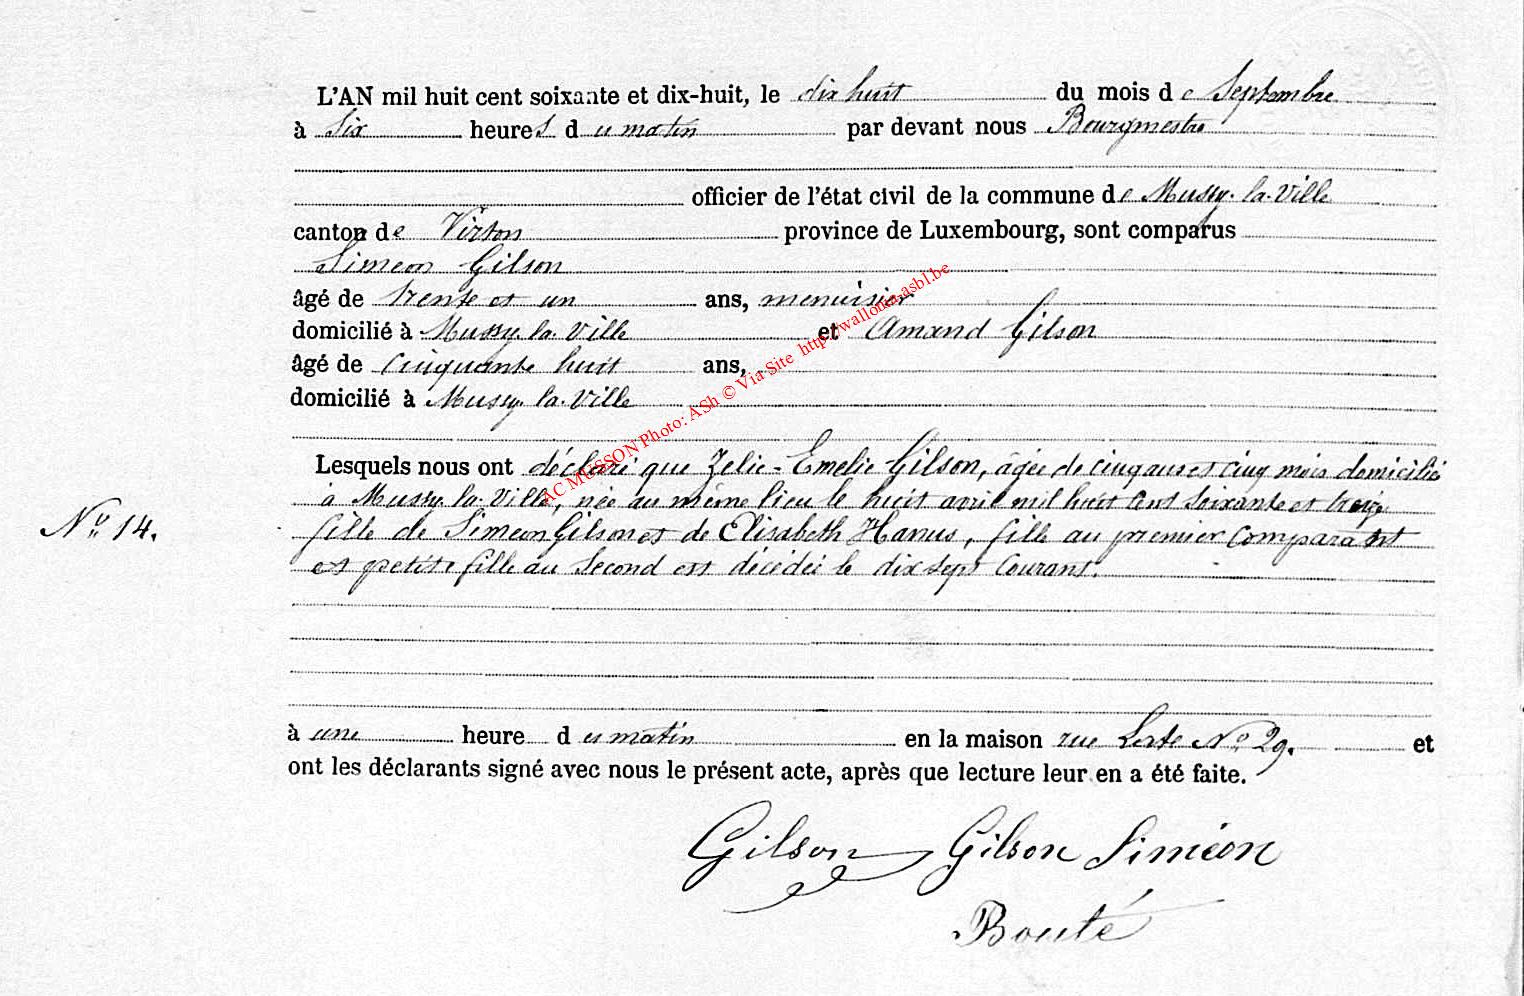 L'AN mil huit cent soixante et dix-huit, le dix huit du mois de Septembre
à Six heures du matin par devant nous Bourgmestre
officier de l'état civil de la commune de Mussy-la-Ville
canton de Virton province de Luxembourg, sont comparus
Simeon Gilson
âgé de trente et un ans, menuisier
domicilié à Mussy-la-Ville et Amand Gilson
âgé de cinquante huit ans,
domicilié à Mussy-la-Ville
Lesquels nous ont déclaré que Zelie-Emelie Gilson, âgée de cinq ans et cinq mois domicilié
à Mussy-la-Ville, née au même lieu le huit avril mil huit cent soixante et treize
N° 14. fille de Simeon Gilson et de Elisabeth Hanus, fille au premier comparant
et petite fille au Second est décédée le dix sept Courant.
à une heure du matin en la maison rue N° 29. et
ont les déclarants signé avec nous le présent acte, après que lecture leur en a été faite.
Gilson Gilson Siméon
Bouté
AC MUSSON Photo: ASh © Via Site http://wallonia-asbl.be